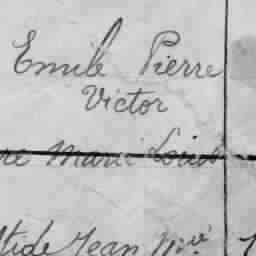 Emile Pierre
Victor
re Marie Louis
tide Jean Mie